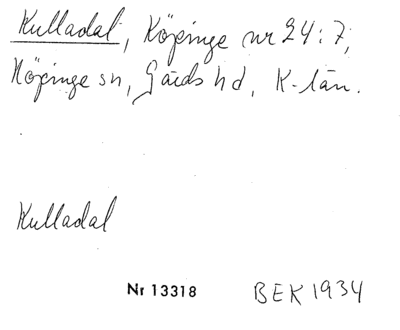 Kulladal, Köpinge nr 24:7,
Köpinge sn, Gärds hd, K-län.
Kulladal
Nr 13318 BEK 1934